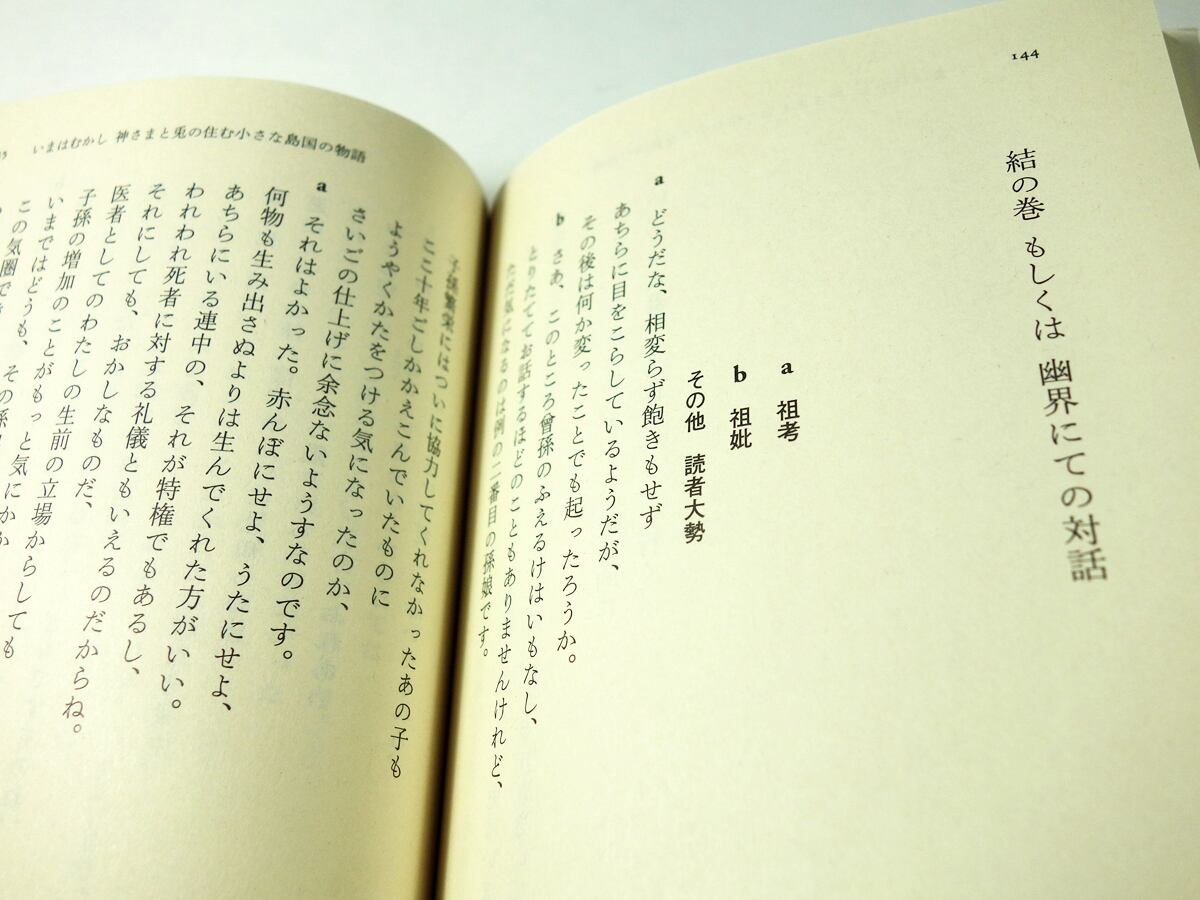 144
結の巻 もしくは 幽界にての対話
a 祖考
b 祖妣
その他 読者大勢
a どうだな、相変らず飽きもせず
あちらに目をこらしているようだが、
その後は何か変ったことでも起ったろうか。
b さあ、このところ曾孫のふえるけはいもなし、
とりたててお話するほどのこともありませんけれど、
ただ気になるのは例の二番目の孫娘です。
いまはむかし 神さまと兎の住む小さな島国の物語
子孫繁栄にはついに協力してくれなかったあの子も
ここ十年ごしかかえこんでいたものに
ようやくかたをつける気になったのか、
さいごの仕上げに余念ないようすなのです。
a それはよかった。赤んぼにせよ、うたにせよ、
何物も生み出さぬよりは生んでくれた方がいい。
あちらにいる連中の、それが特権でもあるし、
われわれ死者に対する礼儀ともいえるのだからね。
それにしても、おかしなものだ、
医者としてのわたしの生前の立場からしても
子孫の増加のことがもっと気にかか
いまではどうも、その孫
この気圏でき